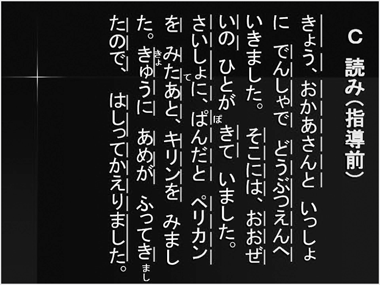 Ｃ 読み（指導前）
きょう、おかあさんと いっしょ
に でんしゃで どうぶつえんへ
いきました。 そこには、おおぜ
いの ひとが きて いました。
ぽ
さいしょに、ぱんだと ペリカン
て
を みたあと、キリンを みまし
きょ
た。きゅうに あめが ふってき
まし
たので、 はしってかえりました。